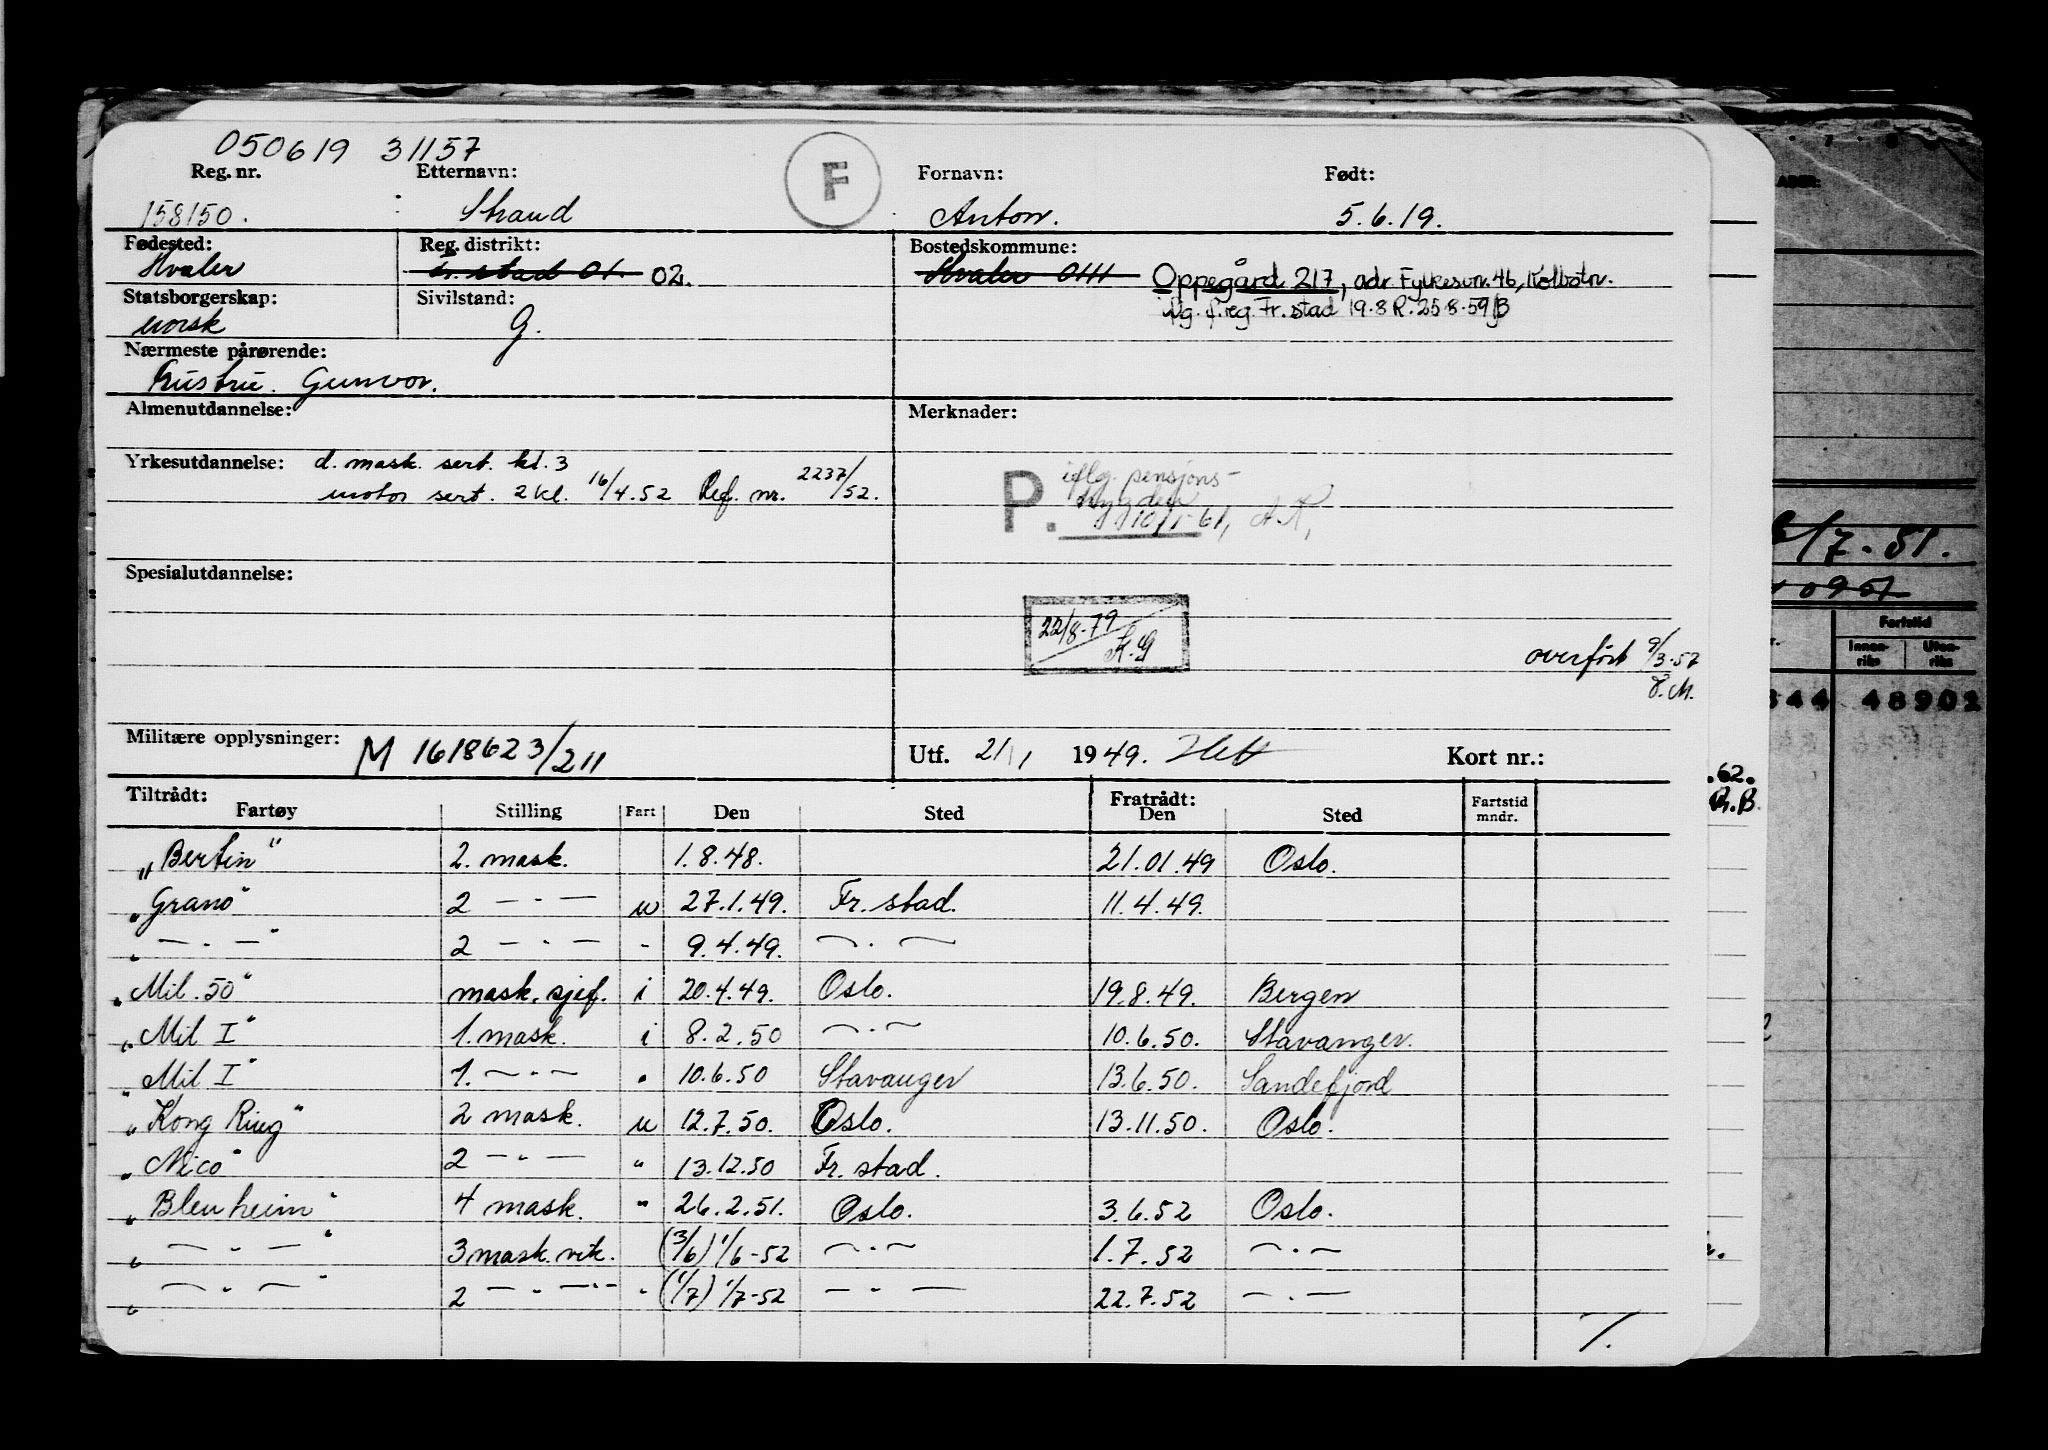 050619 31157
Reg. nr. Etternavn: F Fornavn: Født:
158150. Strand Anton. 5.6.19.
Fødested: Reg. distrikt: Bostedskommune:
Hvaler Fr. stad 01. 02. Hvaler 0111 Oppegård 217, adr Fylkesvn. 46, Kolbotn.
Statsborgerskap: Sivilstand: iflg. f.reg. Fr. stad 19.8 R. 25.8.59
norsk G.
Nærmeste pårørende:
hustru. Gunvor.
Almenutdannelse: Merknader:
Yrkesutdannelse: d. mask. sert. kl. 3
motor sert. 2 kl. 16/4.52 Ref. nr. 2237/52.
P. iflg. pensjons-
trygden
10/1-61, A.K,
Spesialutdannelse:
22/8-79
K.G
overført 9/3-57
Militære opplysninger: M 1618623/211 Utf. 21/1 1949. Kort nr.:
Tiltrådt: Fratrådt:
Fartøy Stilling Fart Den Sted Den Sted Fartstid mndr.
„Bertin" 2. mask. 1.8.48. 21.01.49 Oslo.
„Grano" 2 — . — u 27.1.49. Fr. stad. 11.4.49.
„ — . — " 2 — . — - 9.4.49. — . —
„Mil. 50" mask. sjef. i 20.4.49. Oslo. 19.8.49. Bergen
„Mil I" 1. mask. i 8.2.50 — . — 10.6.50. Stavanger.
„Mil I" 1. — . — . 10.6.50 Stavanger 13.6.50. Sandefjord
„Kong Ring" 2 mask. u 12.7.50. Oslo. 13.11.50. Oslo.
„Nico" 2 — " — " 13.12.50 Fr. stad.
„Blenheim" 4 mask. " 26.2.51. Oslo. 3.6.52 Oslo.
„ — " — " 3 mask. vik. (3/6) 1/6-52 — . — 1.7.52 — . —
„ — " — " 2 — " — . — - (1/7) 1/7-52 — " — 22.7.52 — . —
/.
/7-51.
Fartstid
Innen-
riks
Uten-
riks
344 48902
.62.
R.B.